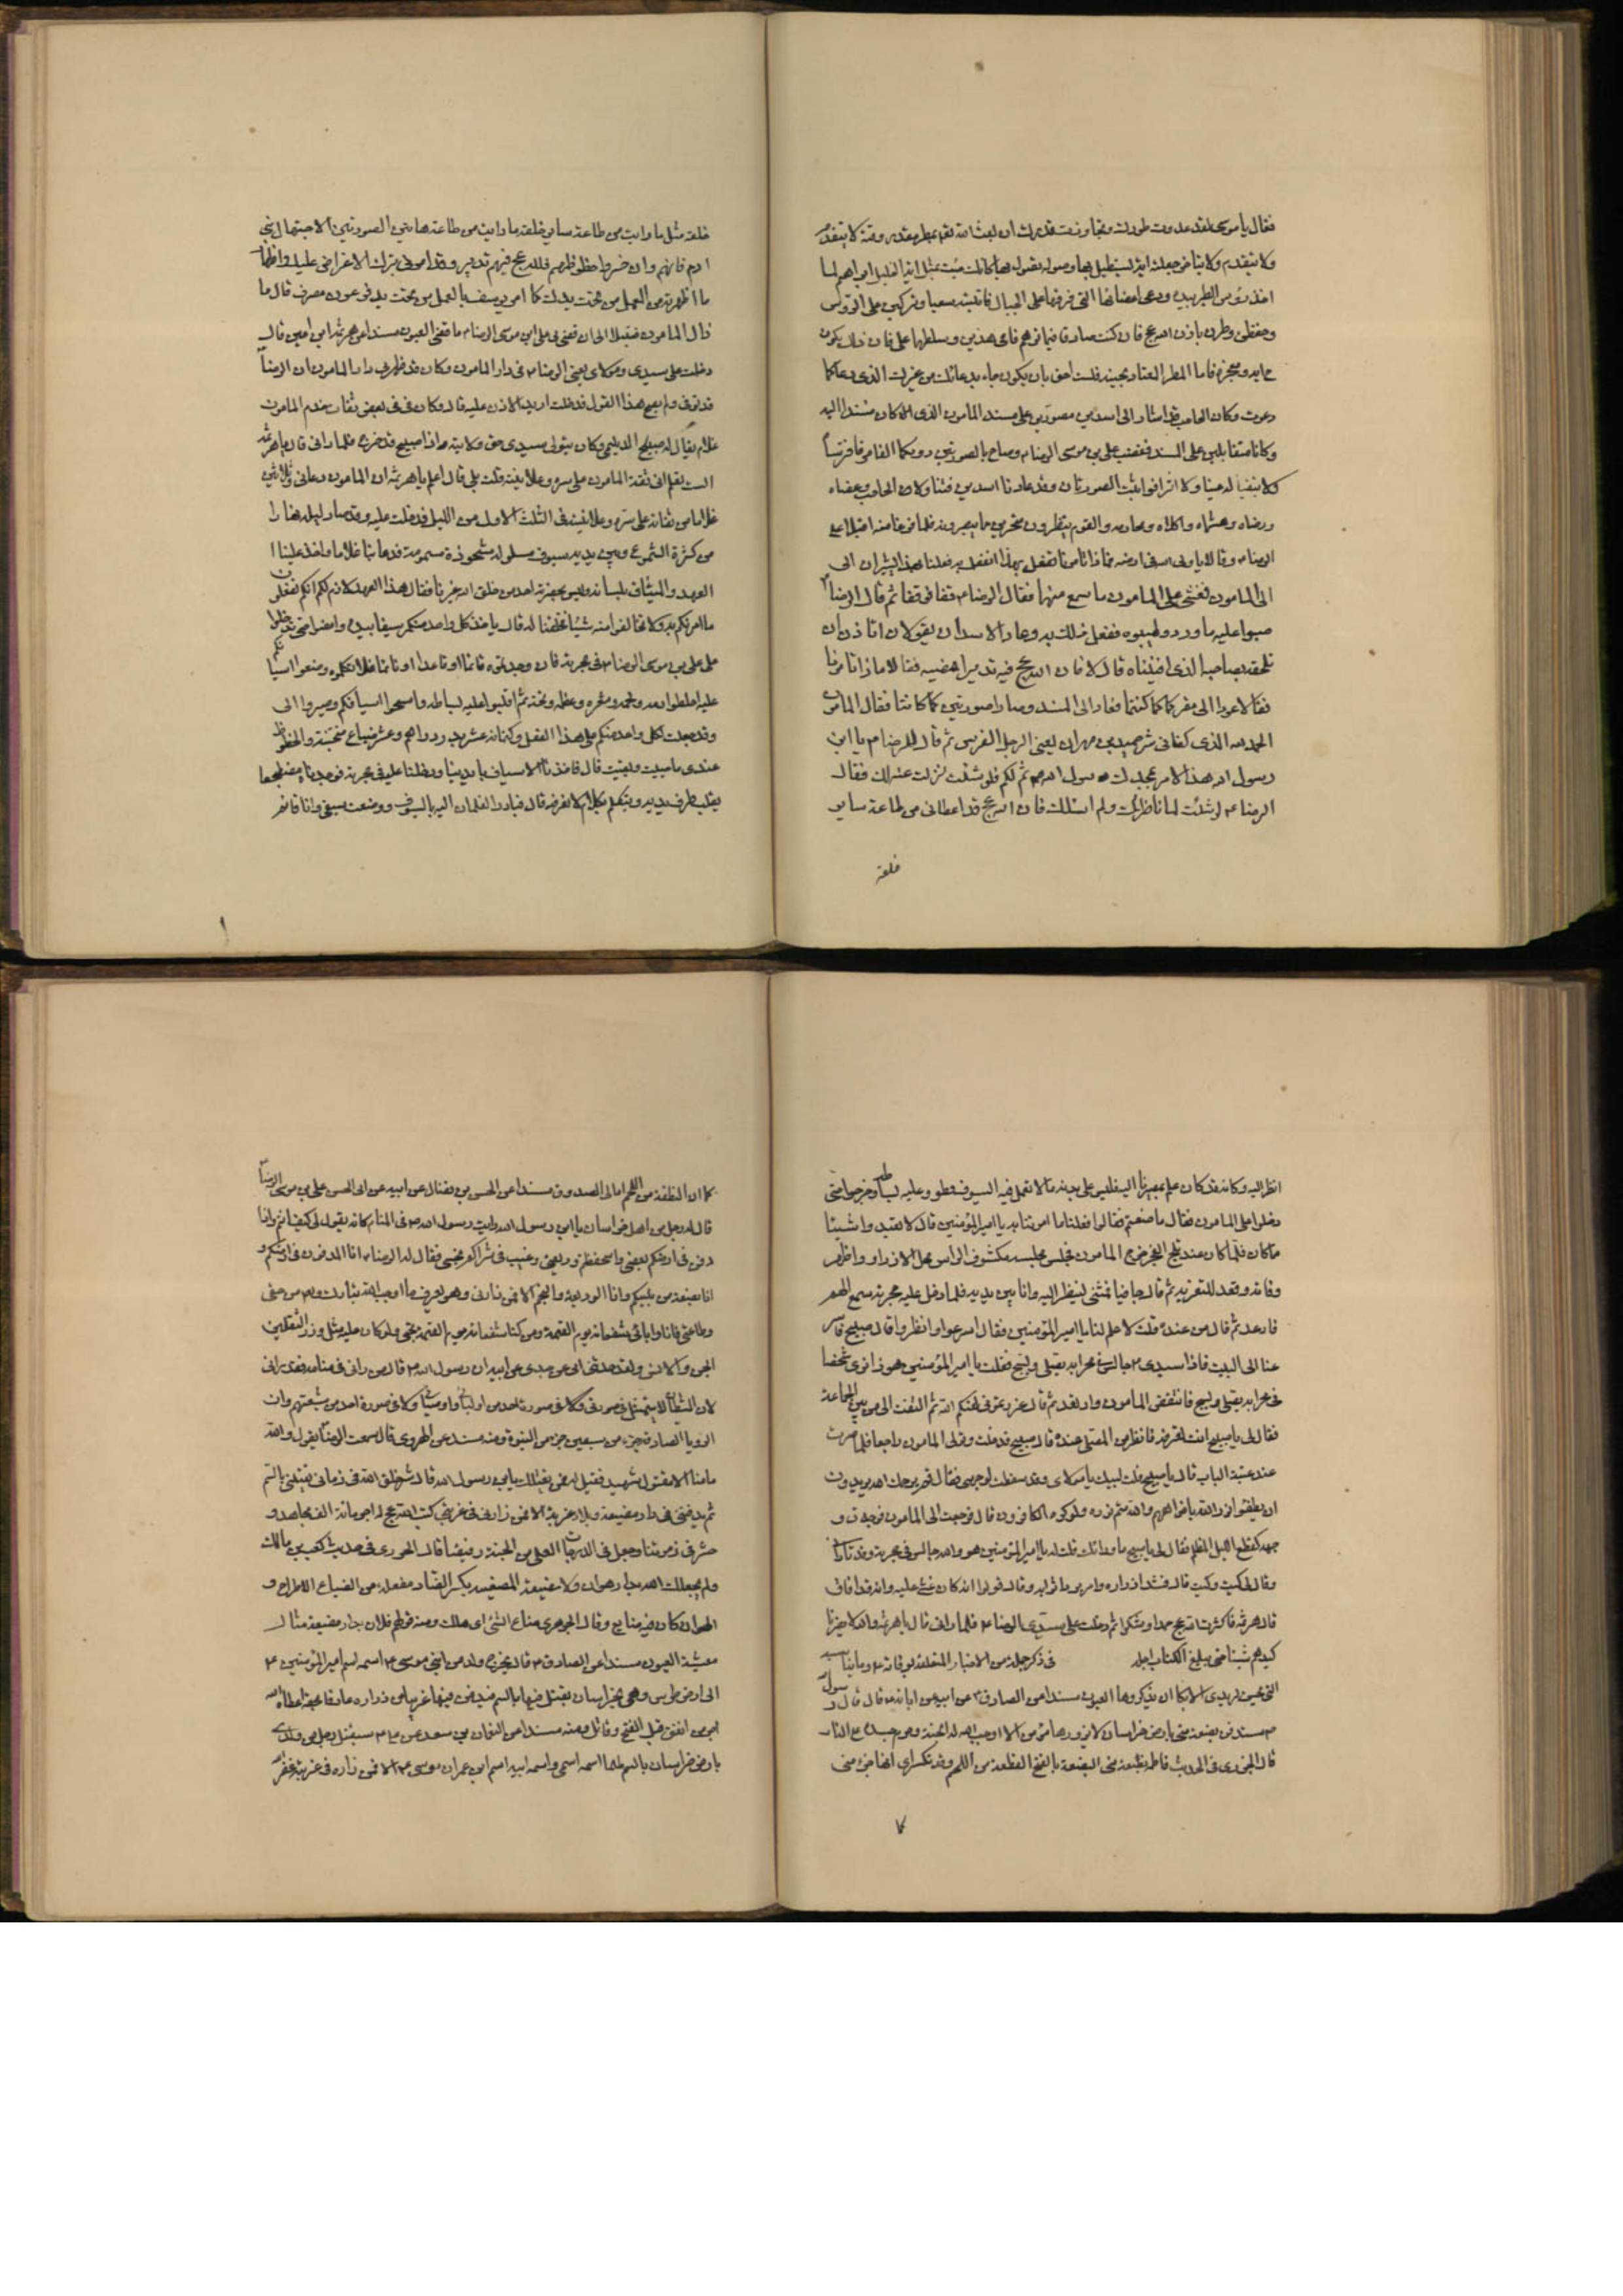 فقال يا موسى لقد عدوت طورك وتجاوزت قدرك ان بعث الله تعالى بمطر مقدر وقته لا يتقدم
ولا يتاخر جعلته اية تستطيل بها وصولة تصول بها كانك جئت بمثل اية الخليل ابراهيم لما
اخذ رؤس الطير بيده ودعى اعضائها التى فرقها على الجبال فاتينه سعيا وتركبن على الرؤس
وخفقن وطرن باذن الله عج فان كنت صادقا فيما توهم فاحى هذين وسلطهما على فان ذلك يكون
ح اية ومعجزة فاما المطر المعتاد مجيئه فلست احق بان يكون جاء بدعائك من غيرك الذى دعا كما
دعوت وكان الحاجب قد اشار الى اسدين مصورين على مسند المامون الذى كان مستندا اليه
وكانا متقابلين على المسند فغضب على بن موسى الرضا وصاح بالصورتين دونكما الفاجر فافترسا
ولا تبقيا له عينا ولا اثرا فوثبت الصورتان وقد عادتا اسدين فتناولا الحاجب وعضاه
ورضاه وهشماه واكلاه ولحسا دمه والقوم ينظرون متحيرين مما يبصرون فلما فرغا منه اقبلا على
الرضا وقالا يا ولى الله فى ارضه ماذا تامرنا نفعل بهذا انفعل به فعلنا بهذا يشيران الى
الى المامون فغشى على المامون مما سمع منهما فقال الرضا قفا فوقفا ثم قال الرضا
صبوا عليه ماء ورد وطيبوه ففعل ذلك به وعاد الاسدان يقولان اتاذن لنا ان
نلحقه بصاحبه الذى افنيناه قال لا فان لله عج فيه تدبيرا هو ممضيه فقالا ماذا تامرنا
فقال عودا الى مقركما كما كنتما فعادا الى المسند وصارا صورتين كما كانتا فقال المامون
الحمد لله الذى كفانى شر حميد بن مهران يعنى الرجل المفترس ثم قال للرضا يا ابن
رسول الله هذا الامر لجدك رسول الله ثم لكم فلو شئت لنزلت عنه لك فقال
الرضا لو شئت لما ناظرتك ولم اسئلك فان الله عج قد اعطانى من طاعة ساير
خلقه
خلقه مثل ما رايت من طاعة ساير خلقه ما رايت من طاعة هاتين الصورتين الا جهال بنى
ادم فانهم وان خسروا حظوظهم فلله عج فيهم تدبير وقد امرنى بترك الاعتراض عليك واظهار
ما اظهرته من العمل من تحت يدك كما امر يوسف بالعمل من تحت يد فرعون مصر قال ما
زال المامون ضئيلا الى ان قضى فى على ابن موسى الرضا ما قضى العيون مسندا عن هرثمة ابن اعين قال
دخلت على سيدى ومولاى يعنى الرضا فى دار المامون وكان قد ظهر فى دار المامون ان الرضا
قد توفى ولم يصح هذا القول فدخلت اريد الاذن عليه قال وكان فى بعض ثقات خدم المامون
غلام يقال له صبيح الديلمى وكان يتولى سيدى حق ولايته واذا صبيح قد خرج فلما رانى قال يا هرثمة
الست تعلم انى ثقة المامون على سره وعلانيته قلت بلى قال اعلم يا هرثمة ان المامون دعانى وثلاثين
غلاما من ثقاته على سره وعلانيته فى الثلث الاول من الليل فدخلت عليه وقد صار ليله نهارا
من كثرة الشموع وبين يديه سيوف مسلولة مشحوذة مسمومة فدعا بنا غلاما غلاما واخذ علينا
العهد والميثاق بلسانه وليس بحضرته احد من خلق الله غيرنا فقال هذا العهد لازم لكم انكم تفعلون
ما امرتكم به ولا تخالفوا منه شيئا فحلفنا له قال ياخذ كل واحد منكم سيفا بيده وامضوا حتى تدخلوا
على على بن موسى الرضا فى حجرته فان وجدتموه قائما او قاعدا او نائما فلا تكلموه وضعوا اسيافكم
عليه واخلطوا لحمه ودمه وشعره وعظمه ومخه ثم اقلبوا عليه بساطه وامسحوا اسيافكم وصيروا الى
وقد جعلت لكل واحد منكم على هذا الفعل وكتمانه عشر بدر دراهم وعشر ضياع منتخبة والحظوظ
عندى ما حييت وبقيت قال فاخذنا الاسياف بايدينا ودخلنا عليه فى حجرته فوجدناه مضطجعا
يقلب طرف يديه ويتكلم بكلام لا نعرفه قال فبادر الغلمان اليه بالسيوف ووضعت سيفى وانا قائم
انظر اليه وكانه قد كان علم بمصيرنا اليه فلبس على بدنه ما لا تعمل فيه السيوف فطووا عليه بساطه وخرجوا حتى
دخلوا على المامون فقال ما صنعتم فقالوا فعلنا ما امرتنا به يا امير المؤمنين قال لا تعيدوا شيئا
مما كان فلما كان عند تبلج الفجر خرج المامون فجلس مجلسه مكشوف الراس محلل الازرار واظهر
وفاته وقعد للتعزية ثم قام حافيا فمشى لينظر اليه وانا بين يديه فلما دخل عليه حجرته سمع همهمة
فارعد ثم قال من عنده قلت لا علم لنا يا امير المؤمنين فقال اسرعوا وانظروا قال صبيح فاسر
عنا الى البيت فاذا سيدى جالس فى محرابه يصلى ويسبح فقلت يا امير المؤمنين هو ذا نرى شخصا
فى محرابه يصلى ويسبح فانتفض المامون وارتعد ثم قال غررتمونى لعنكم الله ثم التفت الى من بين الجماعة
فقال لى يا صبيح انت تعرفه فانظر من المصلى عنده قال صبيح فدخلت وتولى المامون راجعا فلما صرت
عند عتبة الباب قال يا صبيح قلت لبيك يا مولاى وقد سقطت لوجهى فقال قم يرحمك الله يريدون
ان يطفئوا نور الله بافواههم والله متم نوره ولو كره الكافرون قال فرجعت الى المامون فوجدت و
جهه كقطع الليل المظلم فقال لى يا صبيح ما ورائك قلت له يا امير المؤمنين هو والله جالس فى حجرته وقد نادانى
وقال لى كيت وكيت قال فشد ازراره وامر برد اثوابه وقال قولوا انه كان غشى عليه وانه قد افاق
قال هرثمة فاكثرت لله عج حمدا وشكرا ثم دخلت على سيدى الرضا فلما رانى قال يا هرثمة والله لا يضرنا
كيدهم شيئا حتى يبلغ الكتاب اجله فى ذكر جملة من الاخبار المتعلقة بوفاته
العيون مسندا عن الصادق عن ابيه عن ابائه قال قال رسول
ستدفن بضعة منى بارض خراسان لا يزورها مؤمن الا اوجب الله له الجنة وحرم جسده على النار
قال الجزرى فى الحديث فاطمة بضعة منى البضعة بالفتح القطعة من اللحم وقد تكسر اى انها جزء منى
كما ان القطعة من اللحم امالى الصدوق مسندا عن الحسن بن فضال عن ابيه عن ابى الحسن على بن موسى الرضا
قال له رجل من اهل خراسان يا ابن رسول الله رايت رسول الله فى المنام كانه يقول لى كيف انتم اذا
دفن فى ارضكم بعضى واستحفظتم وديعتى وغيب فى ثراكم نجمى فقال له الرضا انا المدفون فى ارضكم و
انا بضعة من نبيكم وانا الوديعة والنجم الا فمن زارنى وهو يعرف ما اوجب الله تبارك وتعالى من حقى
وطاعتى فانا وابائى شفعائه يوم القيمة ومن كنا شفعائه يوم القيمة نجى ولو كان عليه مثل وزر الثقلين
الجن والانس ولقد حدثنى ابى عن جدى عن ابيه ان رسول الله قال من رانى فى منامه فقد رانى
لان الشيطان لا يتمثل فى صورتى ولا فى صورة احد من اوصيائى ولا فى صورة احد من شيعتهم وان
الرؤيا الصادقة جزء من سبعين جزء من النبوة ومنه مسندا عن الهروى قال سمعت الرضا يقول والله
ما منا الا مقتول شهيد فقيل له فمن يقتلك يا بن رسول الله قال شر خلق الله فى زمانى يقتلنى بالسم
ثم يدفننى فى دار مضيعة وبلاد غربة الا فمن زارنى فى غربتى كتب الله عج له اجر مائة الف مجاهد و
حشر فى زمرتنا وجعل فى الدرجات العلى من الجنة رفيقنا قال الجزرى فى حديث كعب بن مالك
ولم يجعلك الله بدار هوان ولا مضيعة المضيعة بكسر الضاد مفعلة من الضياع الاطراح و
الهوان كان فيه ضايع وقال الجوهرى ضاع الشئ اى هلك ومنه قولهم فلان بدار مضيعة مثال
معيشة العيون مسندا عن الصادق قال يخرج ولد من ابنى موسى اسمه اسم امير المؤمنين
الى ارض طوس وهى بخراسان يقتل فيها بالسم فيدفن فيها غريبا من زاره عارفا بحقه اعطاه الله
اجر من انفق قبل الفتح وقاتل ومنه مسندا عن النعمان بن سعد عن سيقتل رجل من ولدى
بارض خراسان بالسم ظلما اسمه اسمى واسم ابيه اسم ابن عمران موسى الا فمن زاره فى غربته غفر